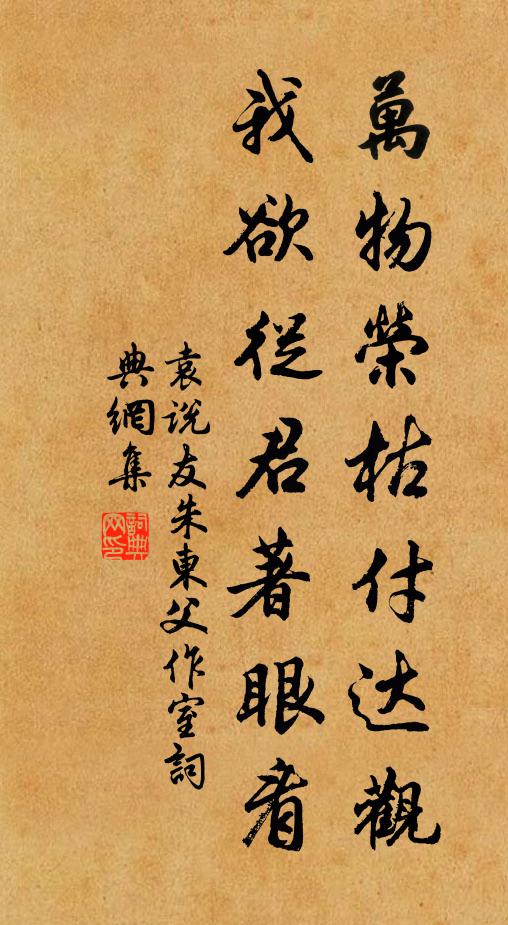 萬物榮枯付达觀
我欲從君著眼看
袁说友朱東父作室詞
典網集
詞典
网印